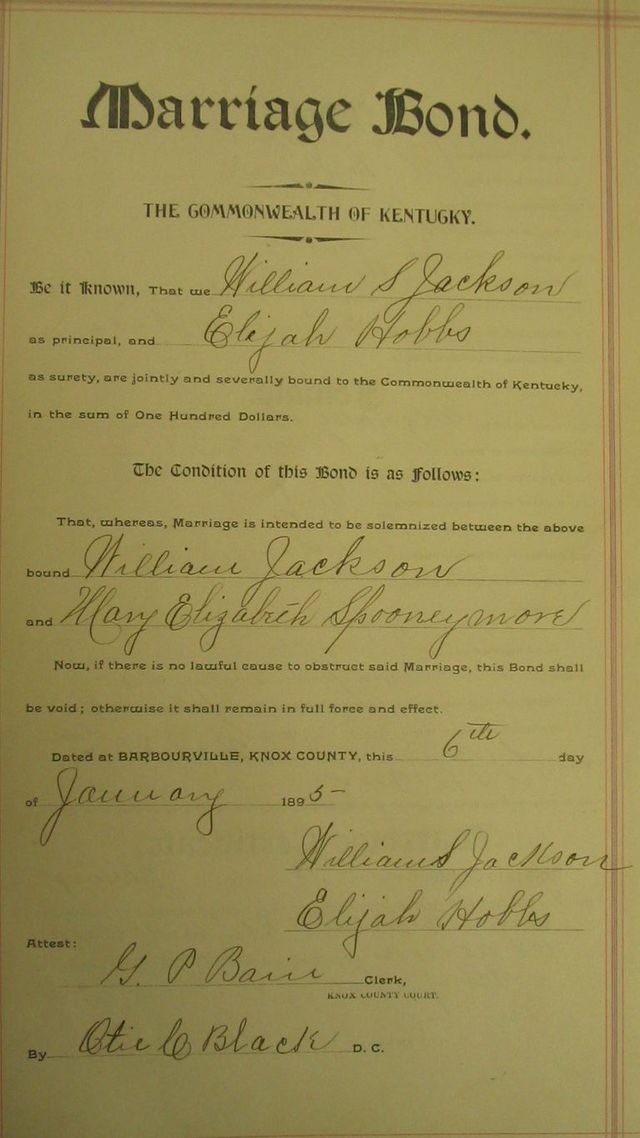 Marriage Bond.
THE COMMONWEALTH OF KENTUCKY.
Be it Known, That we William S Jackson
as principal, and Elijah Hobbs
as surety, are jointly and severally bound to the Commonwealth of Kentucky,
in the sum of One Hundred Dollars.
The Condition of this Bond is as Follows:
That, whereas, Marriage is intended to be solemnized between the above
bound William Jackson
and Mary Elizabeth Spooneymore
Now, if there is no lawful cause to obstruct said Marriage, this Bond shall
be void; otherwise it shall remain in full force and effect.
Dated at BARBOURVILLE, KNOX COUNTY, this 6th day
of January 1895
William S Jackson
Elijah Hobbs
Attest:
G. P Bain Clerk,
KNOX COUNTY COURT.
By Black D. C.